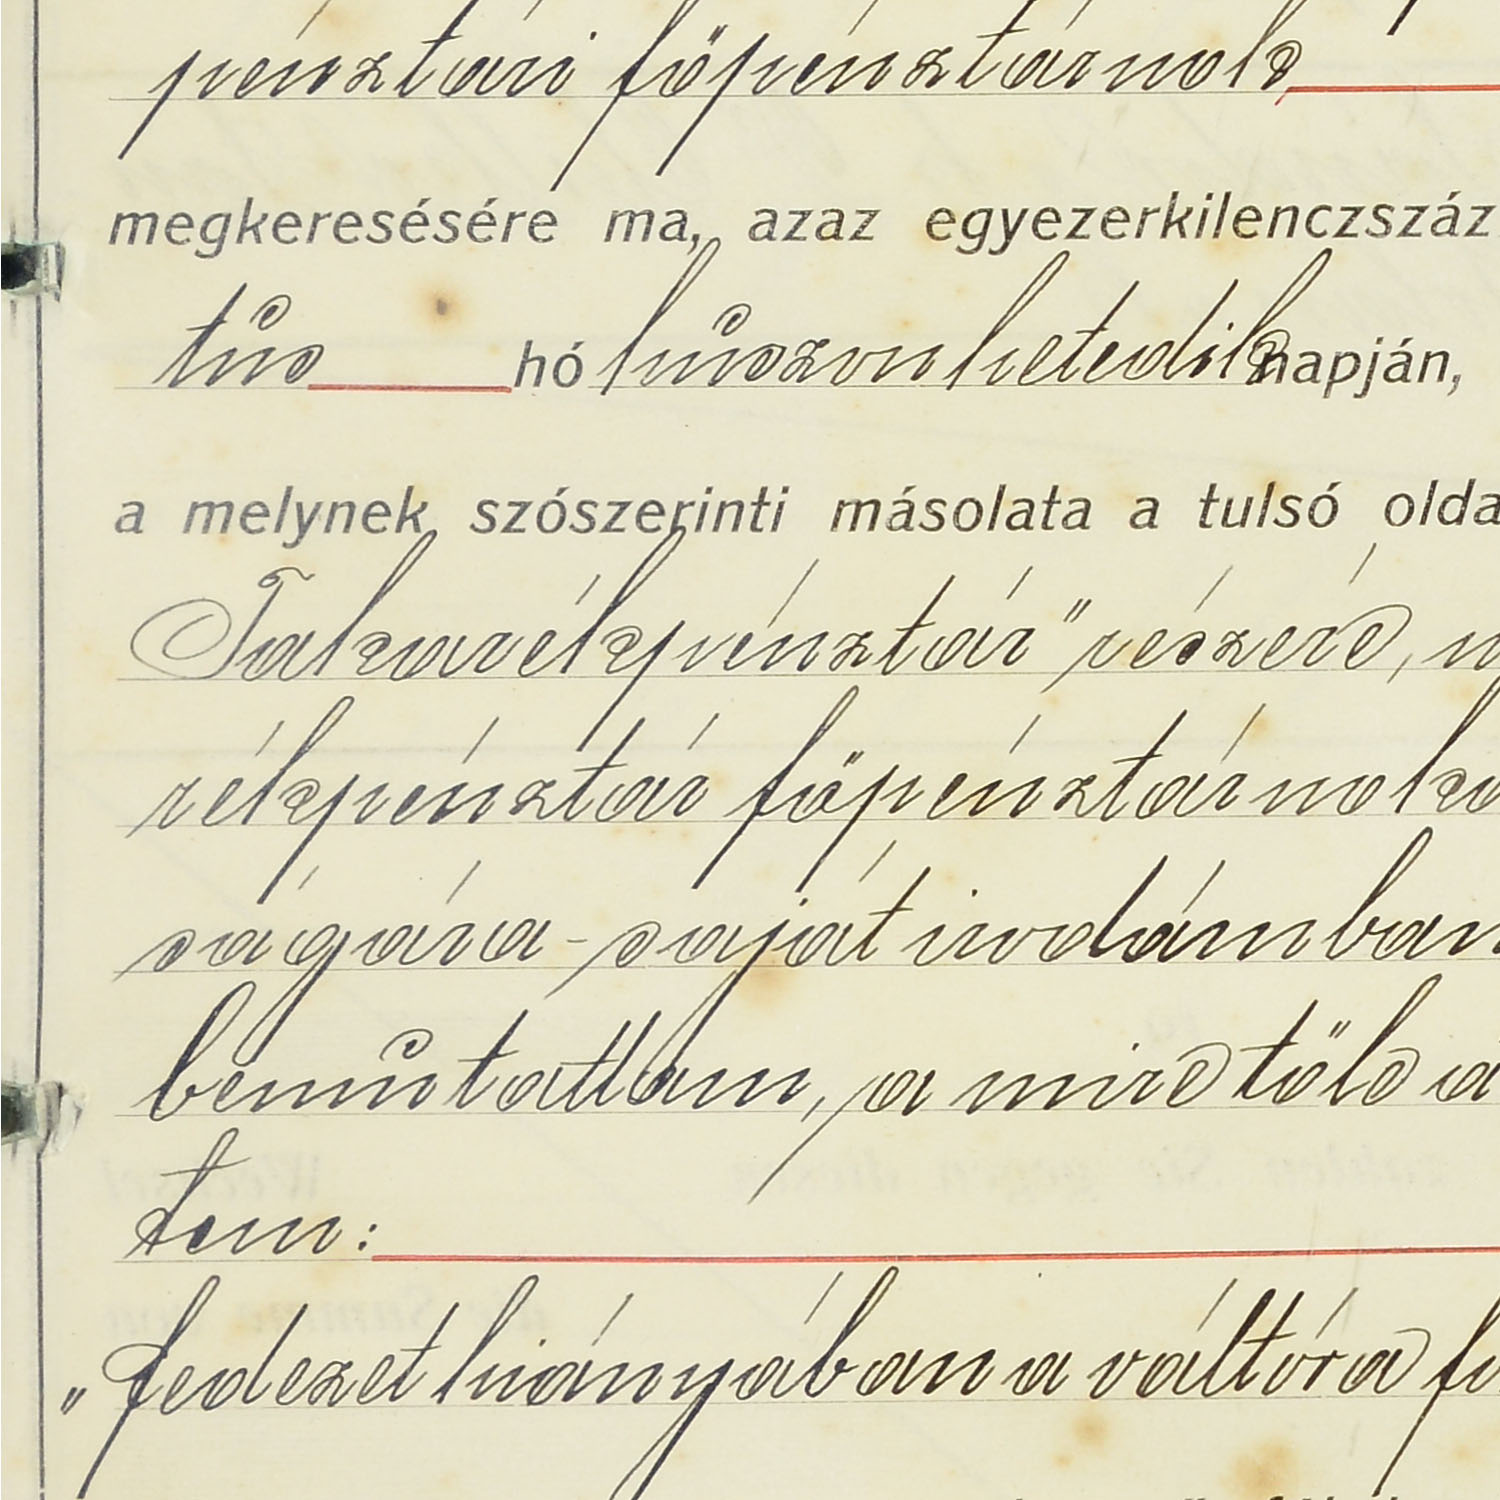 pénztári főpénztárnok
megkeresésére ma, azaz egyezerkilenczszáz
tus hó huszonhetedik napján,
a melynek szószerinti másolata a tulsó olda
Takarékpénztár" részére,
rékpénztár főpénztárnoka
ságára - saját irodámban
bemutattam, a mire tőle a
tem:
"fedezet hiányában a váltóra fi